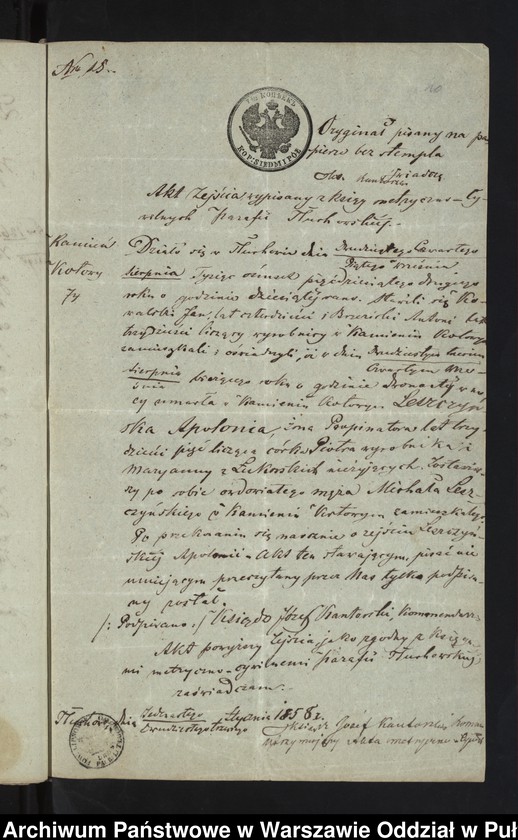 No 18.
Oryginał pisany na pa-
pierze bez stempla
Akt Zejścia wypisany z Księgi metryczno-Cy-
wilnych Parafii Tłuchowskiej.
Kamień
Kotowy
74
Działo się w Tłuchowie dnia Dwudziestego Czwartego
Sierpnia Tysiąc ośmset pięćdziesiątego drugiego
roku o godzinie dziesiątej rano. Stawili się Ko-
walski Jan, lat czterdzieści i Brzeziński Antoni lat
trzydzieści liczący wyrobnicy w Kamieniu Kotowym
zamieszkali i oświadczyli, iż w dniu
Sierpnia bieżącego roku o godzinie w no-
cy umarła w Kamieniu Kotowym Leszczyń-
ska Apolonia, żona Propinatora lat trzy-
dzieści pięć licząca córka Piotra wyrobnika i
Maryanny z Żukowskich nieżyjących. Zostawiw-
szy po sobie owdowiałego męża Michała Lesz-
czyńskiego w Kamieniu Kotowym zamieszkałego.
Po przekonaniu się naocznie o zejściu Leszczyń-
skiej Apolonii. Akt ten stawającym, pisać nie
umiejącym przeczytany przez Nas tylko podpisa-
ny został.
/: Podpisano :/ Ksiądz Józef Kantorski, Komendarz
Akt powyższy Zejścia jako zgodny z Księga-
mi metryczno-cywilnemi parafii Tłuchowskiej
zaświadczam.
Tłuchowo dnia Stycznia 1858 r.
Ksiądz Józef Kantorski Komen
utrzymujący Akta metryczne
Archiwum Państwowe w Warszawie Oddział w Puł